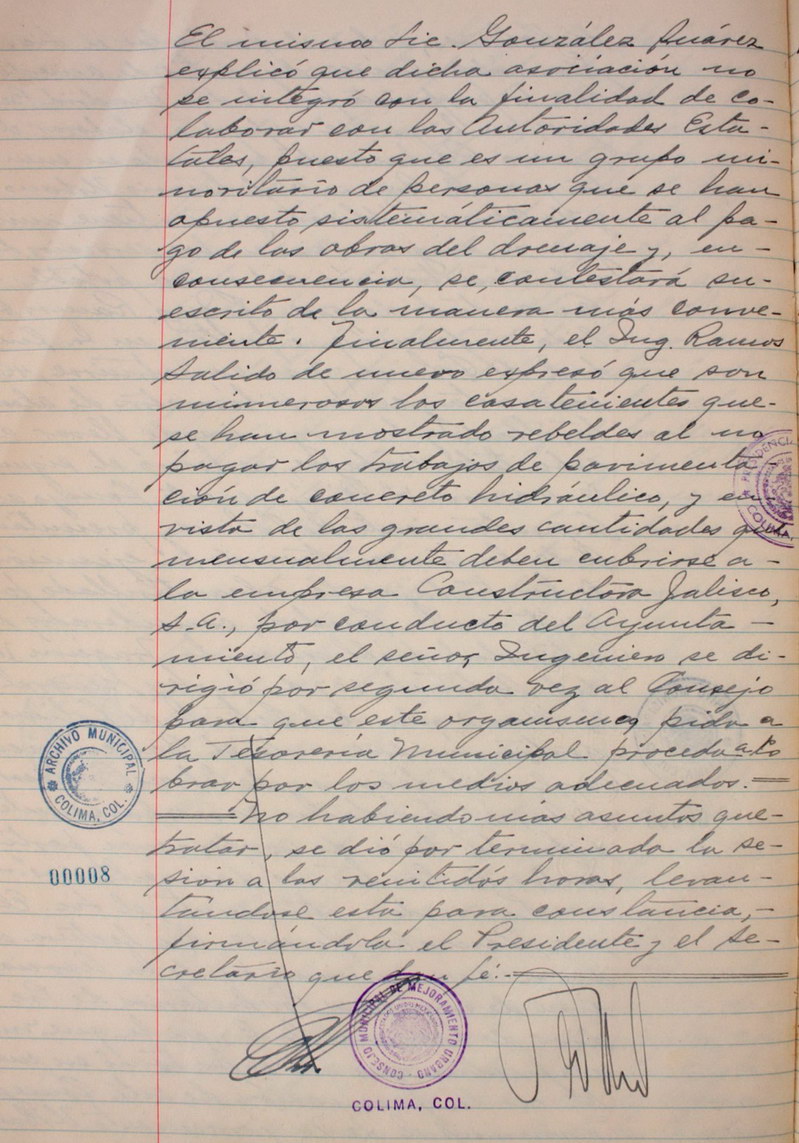 El mismo Lic. González Juárez
explicó que dicha asociación no
se integró con la finalidad de co-
laborar con las Autoridades Esta-
tales, puesto que es un grupo mi-
noritario de personas que se han
opuesto sistemáticamente al pa-
go de las obras del drenaje y, en-
consecuencia, se contestará su-
escrito de la manera más conve-
niente. Finalmente, el Ing. Ramos
Salido de nuevo expresó que son
numerosos los casatenientes que-
se han mostrado rebeldes al no
pagar los trabajos de pavimenta-
ción de concreto hidráulico, y en
vista de las grandes cantidades que
mensualmente deben cubrirse a-
la empresa Constructora Jalisco,
S.A., por conducto del Ayunta-
miento, el señor Ingeniero se di-
rigió por segunda vez al Consejo
para que este organismo pida a
la Tesorería Municipal proceda a co
brar por los medios adecuados.=
No habiendo más asuntos que-
tratar, se dió por terminada la se-
sión a las veintidós horas, levan-
tándose esta para constancia,-
firmándola el Presidente y el Se-
cretario que dan fé.-
PRESIDENCIA
COLIMA,
ARCHIVO MUNICIPAL
COLIMA, COL.
00008
CONSEJO MUNICIPAL DE MEJORAMIENTO URBANO
COLIMA, COL.